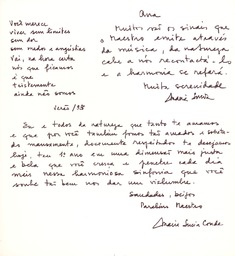 Você merece
viver sem limites
sem dor
sem medos e angústias
Vai, na hora certa
nós que ficamos
é que
tristemente
ainda não somos
Verão/98
Ana
Muitos são os sinais que
o Maestro emite através
da música, da natureza
cabe a nós reconectá-los
e a harmonia se refará.
Muita serenidade
Maria Lucia
Eu e todos da natureza que tanto te amamos
e que por você também fomos tão amados e
mansamente, docemente respeitados te desejamos
hoje, teu 1º ano em uma dimensão mais justa
e bela que você cresça e penetre cada dia
mais nessa harmoniosa sinfonia que você
soube tão bem nos dar um vislumbre.
Saudades, beijos
Parabéns Maestro
Maria Lucia